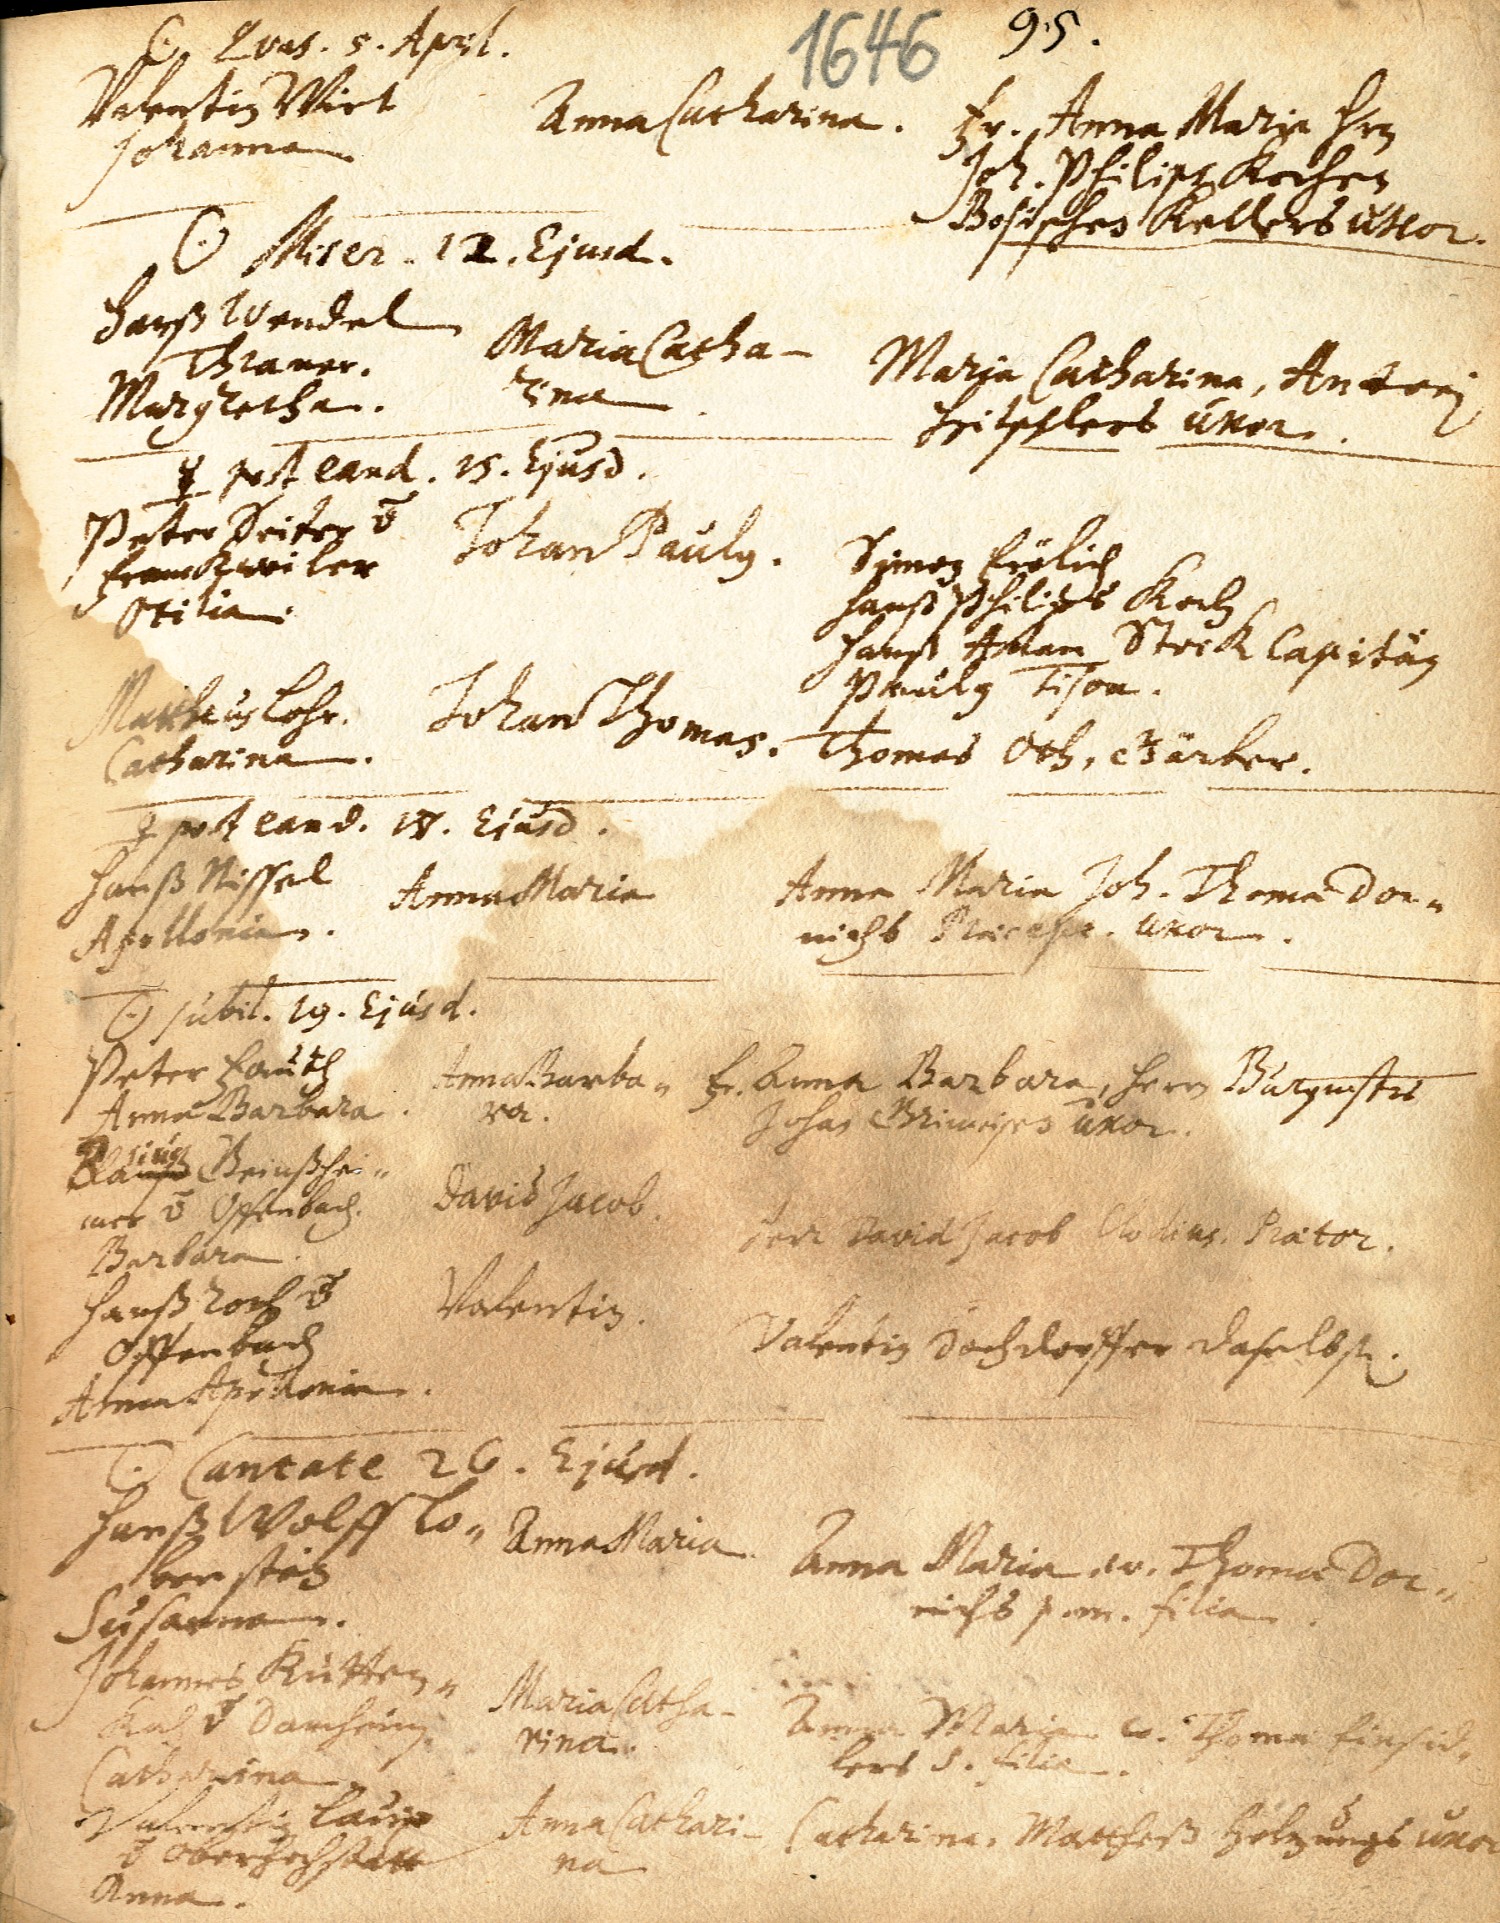 1646 95.
☉ Quas. 5. April.
Valentin Wirt
Johanna
Anna Catharina.
Fr. Anna Maria Hrn
Joh. Philips Kochen
Bosischen Kellers uxor.
☉ Miser. 12. Ejusd.
Hanß Wendel
Thraner.
Margretha.
Maria Catha-
rina
Maria Catharina, Andreæ
uxor.
☿ post eand. 15. Ejusd.
Peter Seiter v̄
Franckweiler
Otilia.
Johan Paulg.
Simon Frölich
Hanß Philips Koch
Hanß Adam Streck Capitän
Paulg Tison.
Mattheus Lohr.
Catharina.
Johan Thomas.
Thomas Oth, Gärber.
♀ post eand. 17. Ejusd.
Hanß Nissel
Apollonia.
Anna Maria
Anna Maria Joh. Thomæ Dor„
nichs Præcept. uxor.
☉ Jubil. 19. Ejusd.
Peter Fauth
Anna Barbara.
Anna Barba„
ra.
Fr. Anna Barbara, Herrn Burgmstrs
uxor.
Blasius Geinßhei„
mer v̄ Offenbach.
Barbara
David Jacob.
Herr David Jacob Clodius. Prætor.
Hanß Koch v̄
Offenbach
Anna Apollonia.
Valentin.
Valentin Dochdorffer daselbst.
☉ Cantate 26. Ejusd.
Hanß Wolff Lo„
benstein
Susanna.
Anna Maria
Anna Maria w. Thomæ Dor„
nichs p.m. filia.
Johannes Kutten„
v̄ Damheim
Catharina
Maria Catha-
rina.
Anna Maria w. Thomæ Einsid„
lers s. filia.
Valentin Laux
v̄ Oberhochstatt
Anna.
Anna Cathari-
na
Catharina, Mattheß uxor